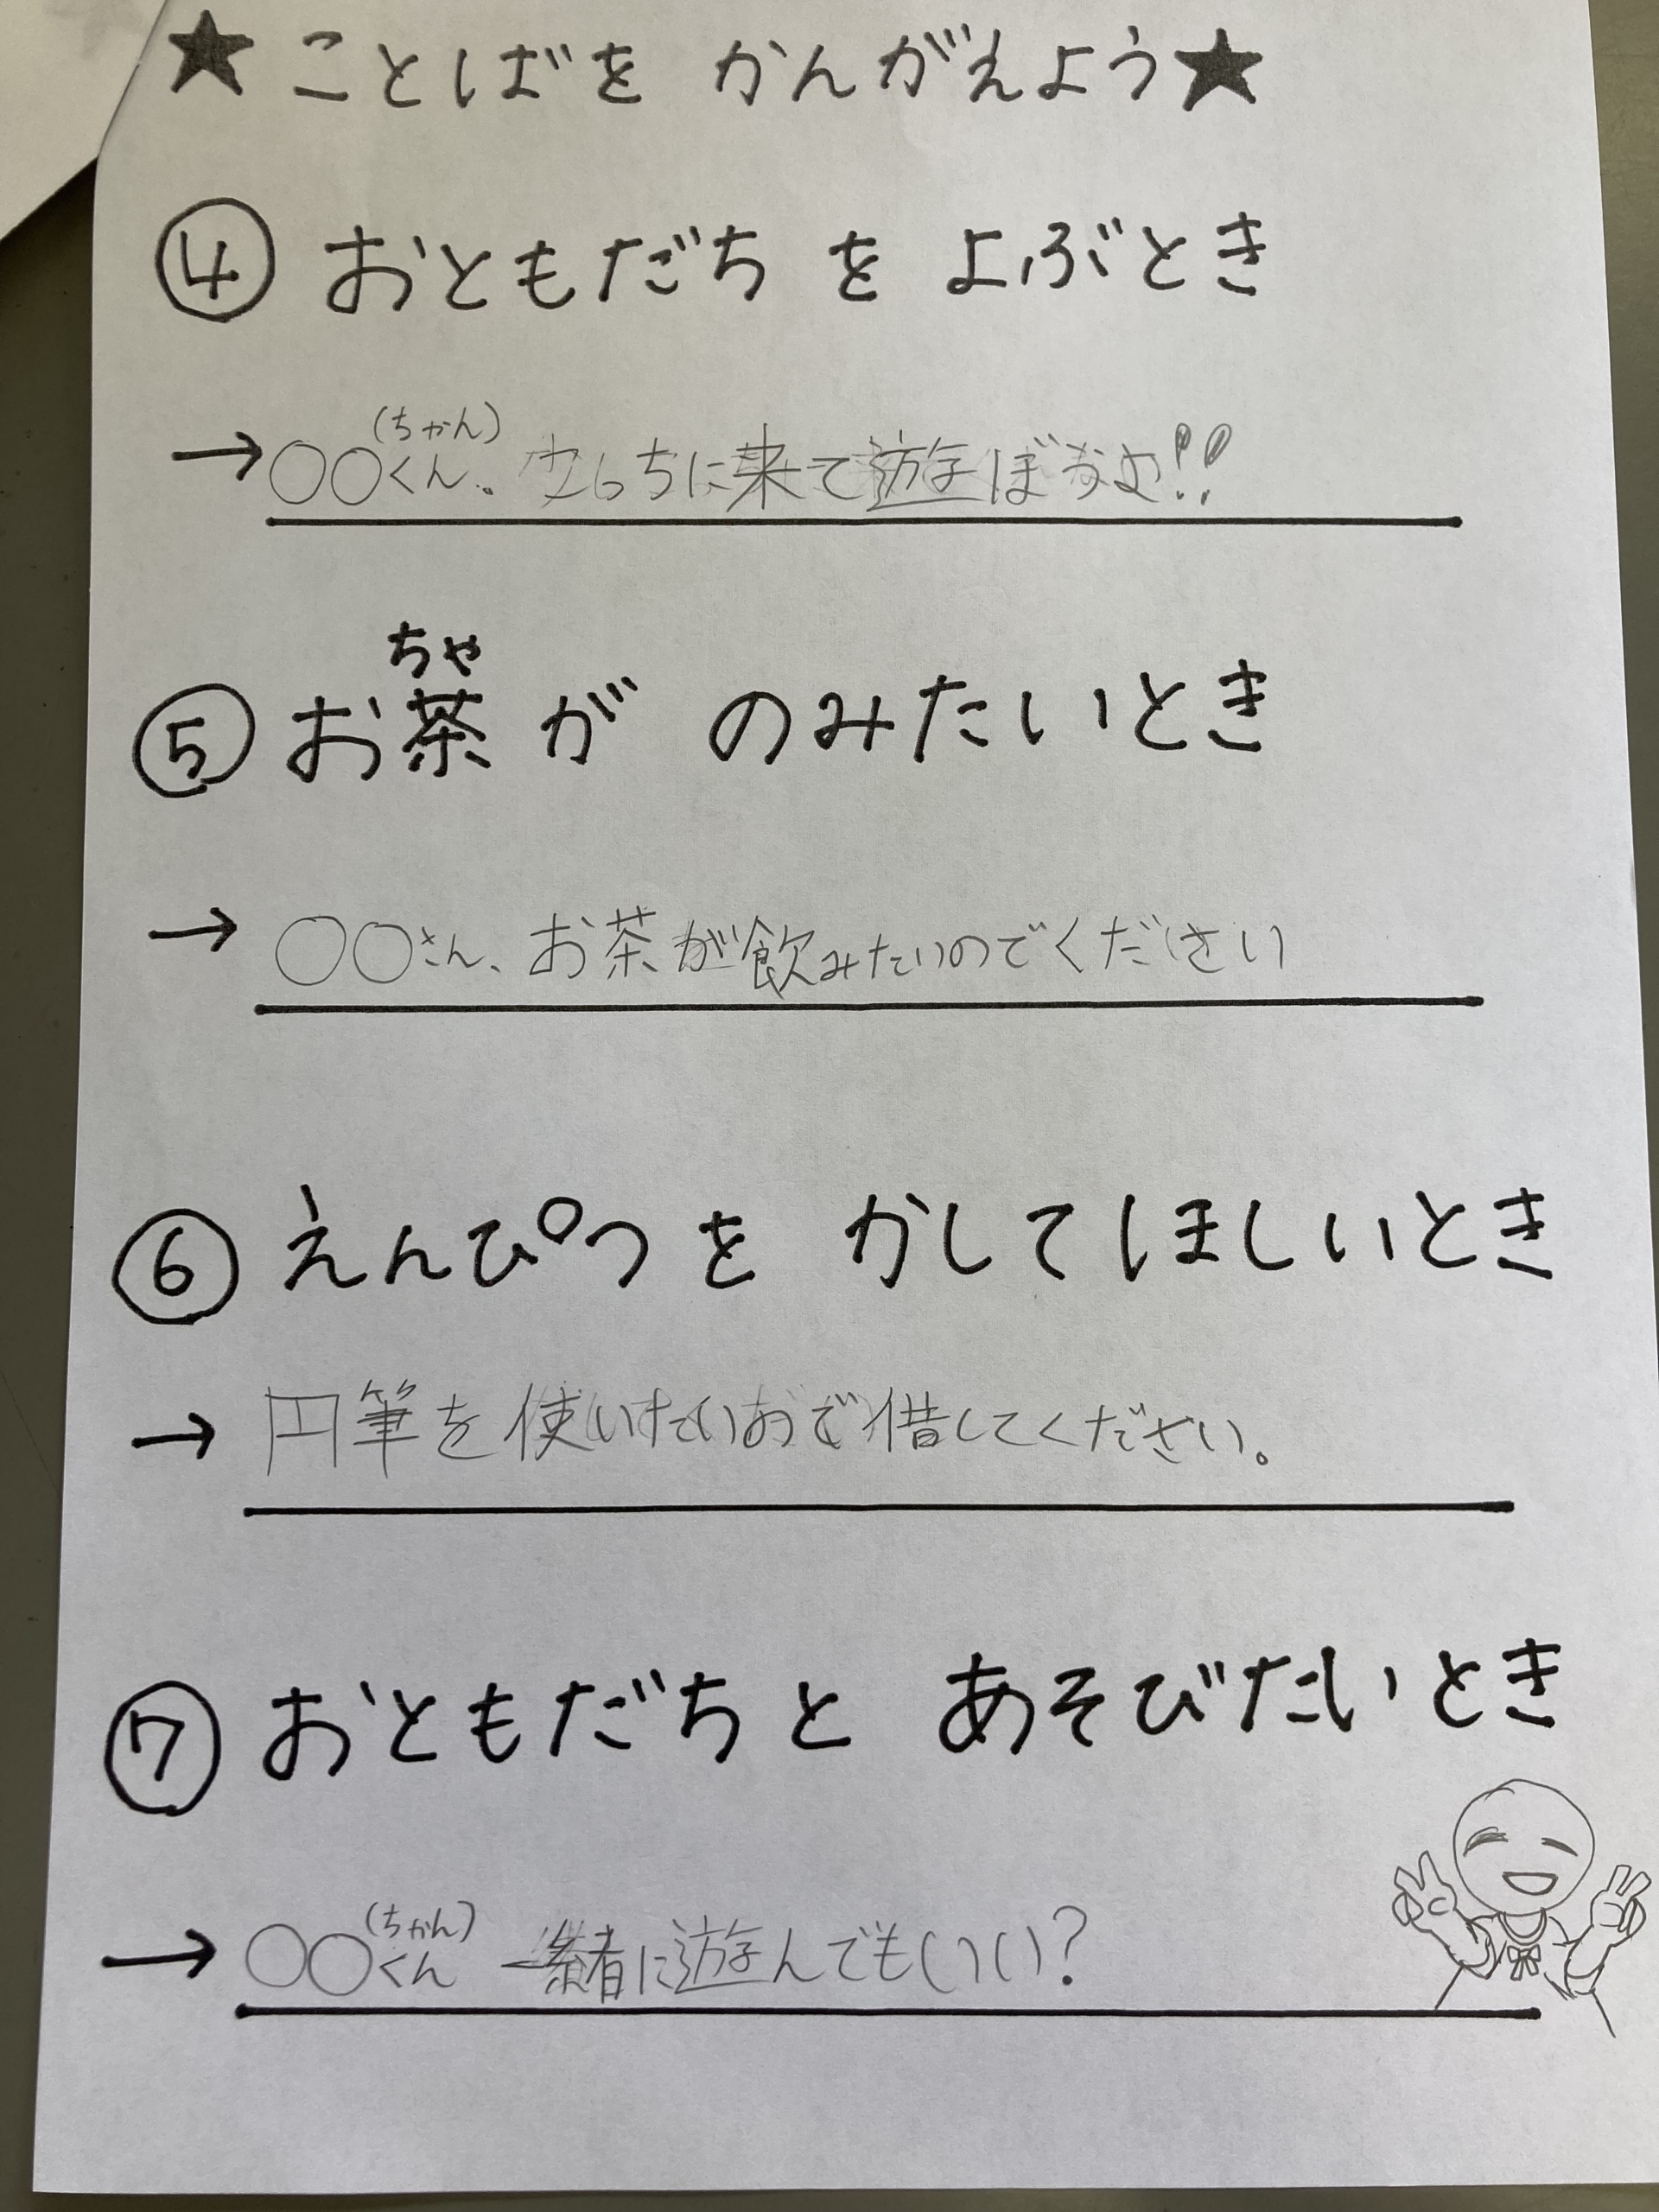 ★ことばを かんがえよう★
④おともだち を よぶとき
(ちゃん)
→〇〇くん、 ちに来て遊ぼうよ!!
ちゃ
⑤お茶が のみたいとき
→〇〇さん、お茶が飲みたいのでください
⑥えんぴつを かしてほしいとき
→円筆を使いたいおで借してください。
⑦おともだちと あそびたいとき
(ちゃん)
→〇〇くん 一緒に遊んでもいい?